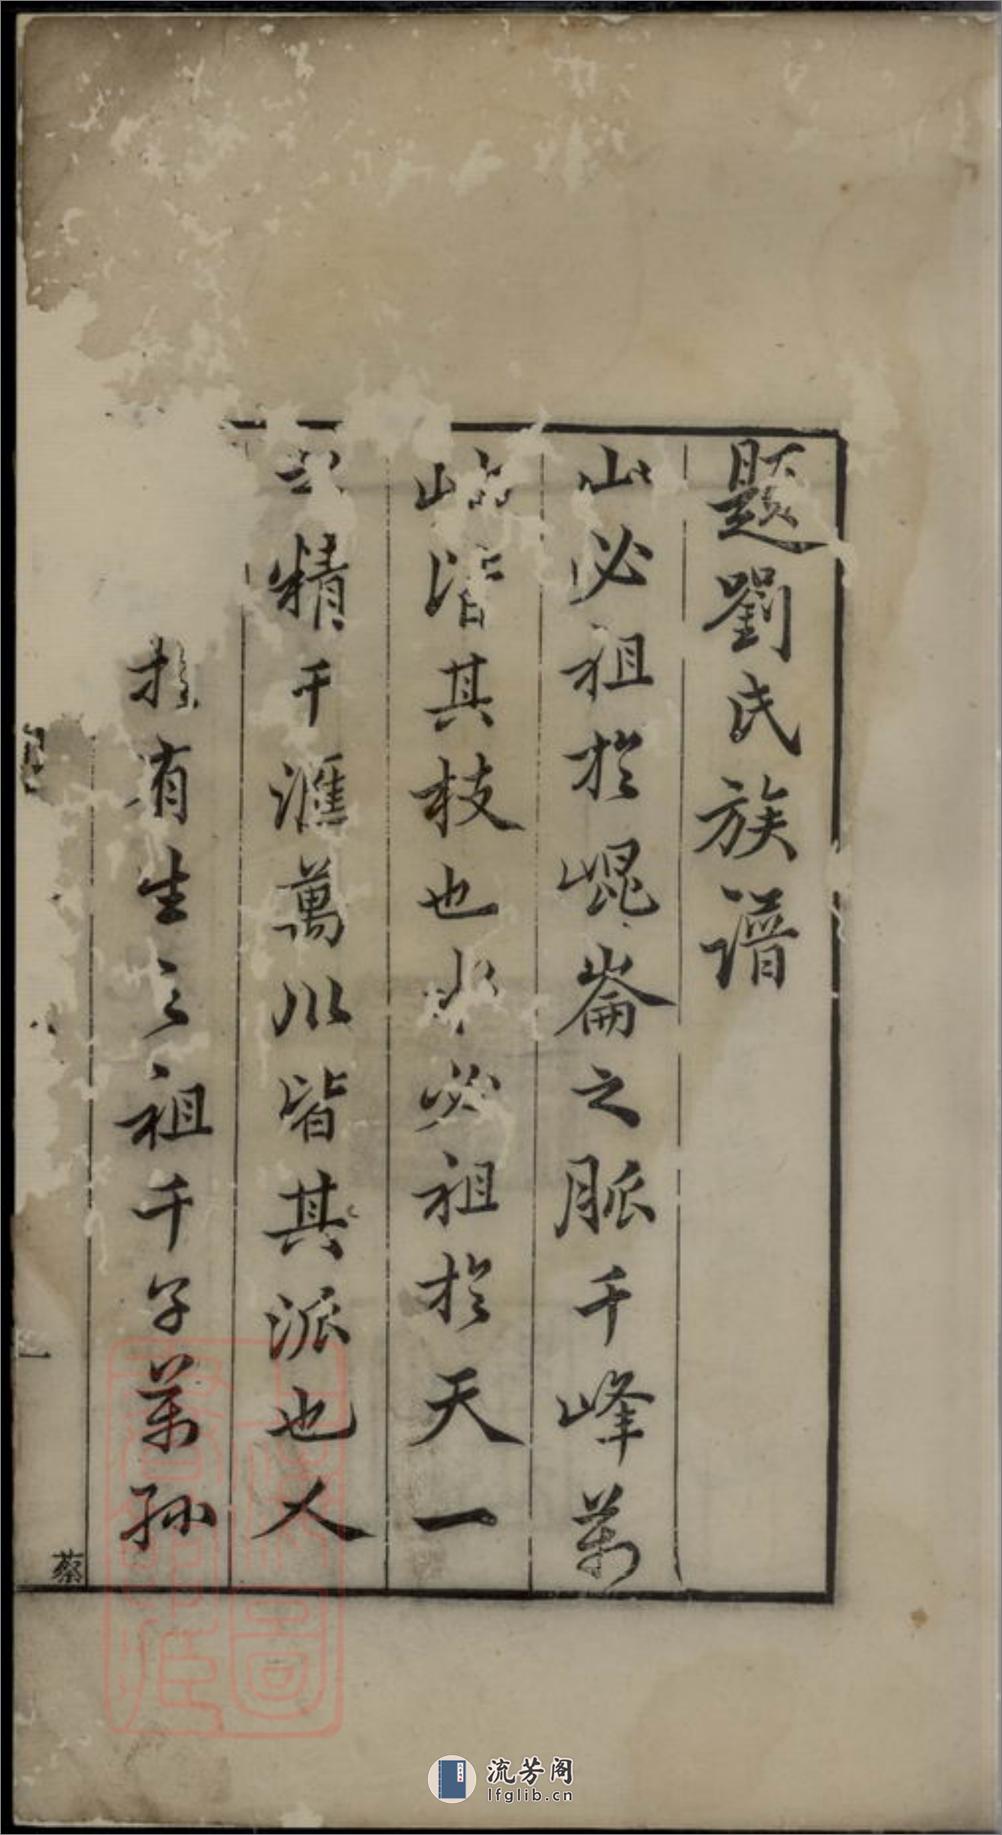 題劉氏族譜
山必祖扵崐崙之脈千峰萬
皆其枝也水必祖扵天一
精千滙萬川皆其派也人
扵有生之祖千子萬孫
一
蔡
流芳阁
lfglib.cn